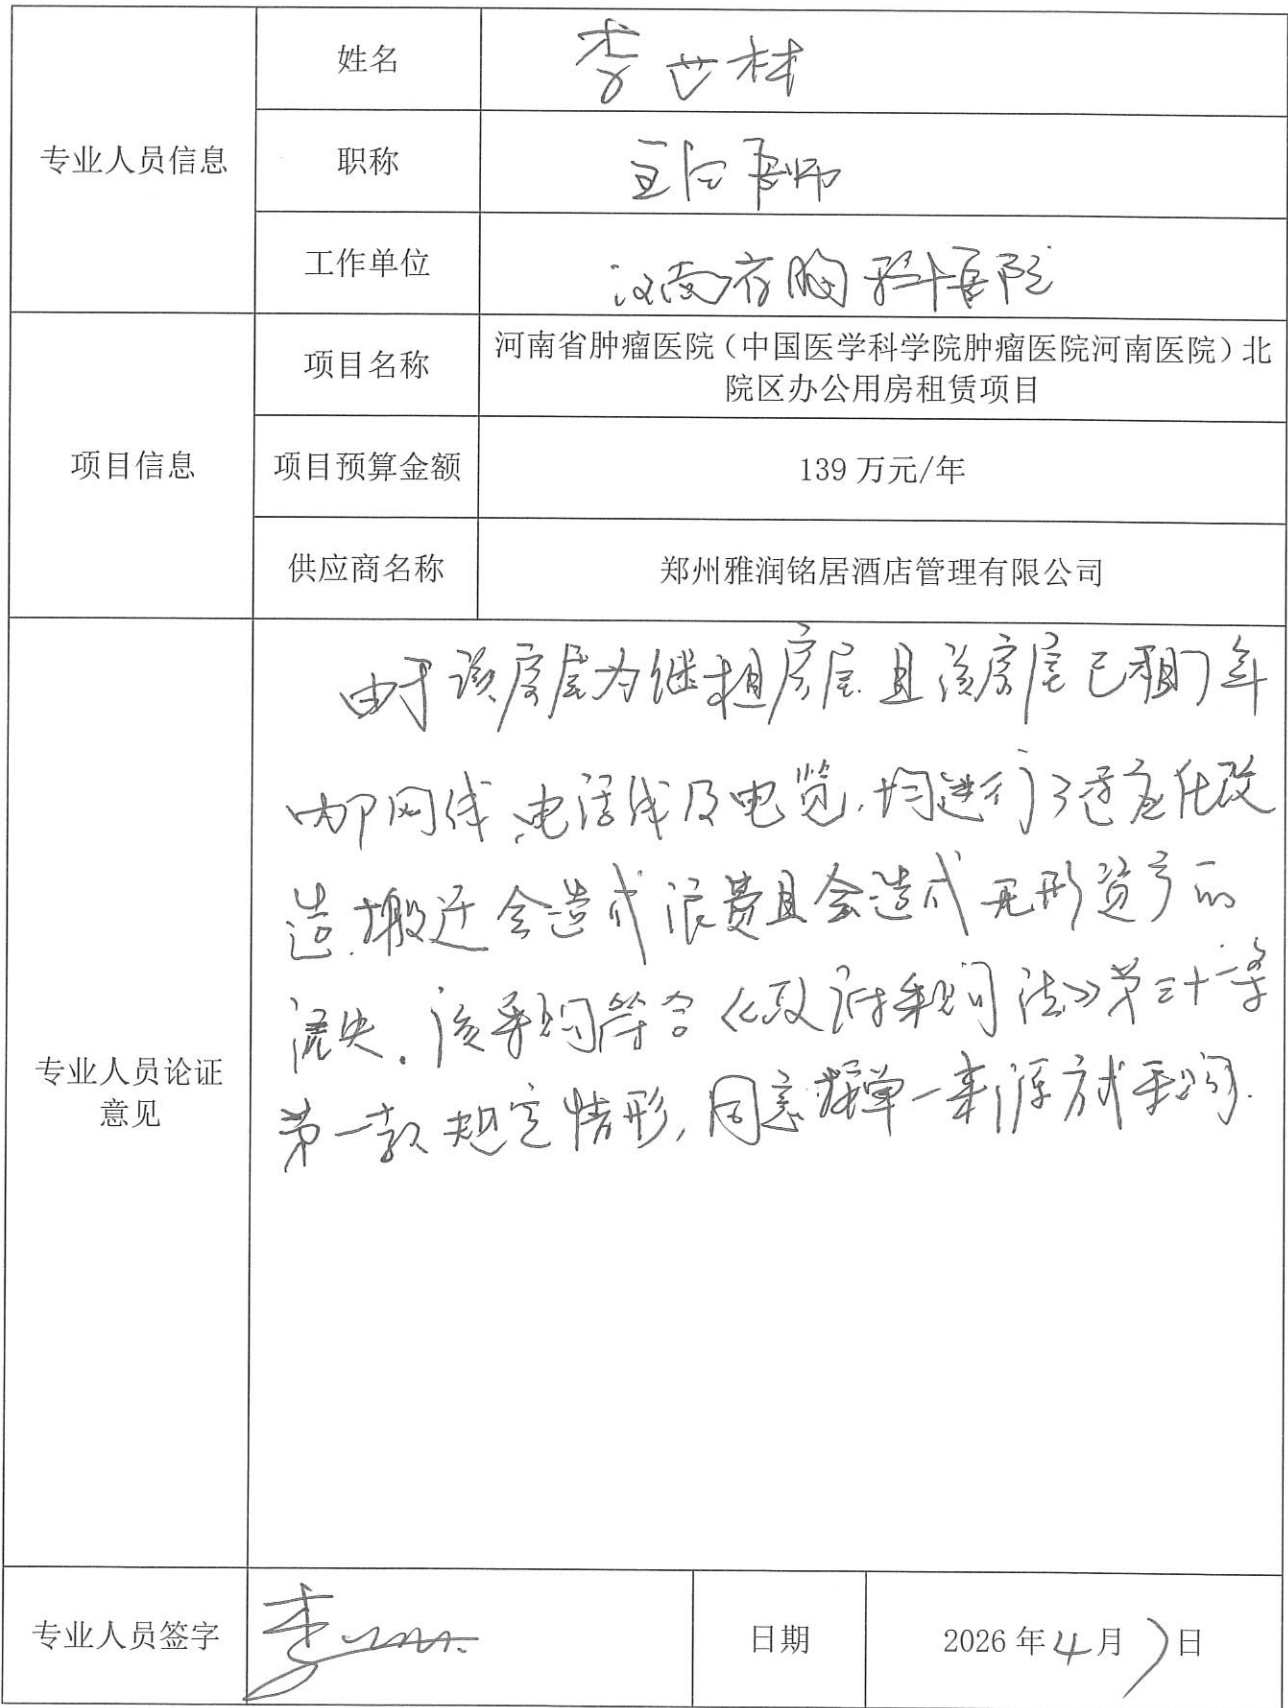 专业人员信息
姓名
李世林
职称
主任医师
工作单位
河南省胸科医院
项目信息
项目名称
河南省肿瘤医院（中国医学科学院肿瘤医院河南医院）北
院区办公用房租赁项目
项目预算金额
139 万元/年
供应商名称
郑州雅润铭居酒店管理有限公司
专业人员论证
意见
由于该房屋为继租房屋且该房屋已租7年
内部网线、电话线及电览,均进行了适应化改
造.搬迁会造成浪费且会造成无形资产的
流失.该采购符合《政府采购法》第三十一条
第一款规定情形,同意 单一来源方式采购.
专业人员签字
李
日期
2026 年4月7日